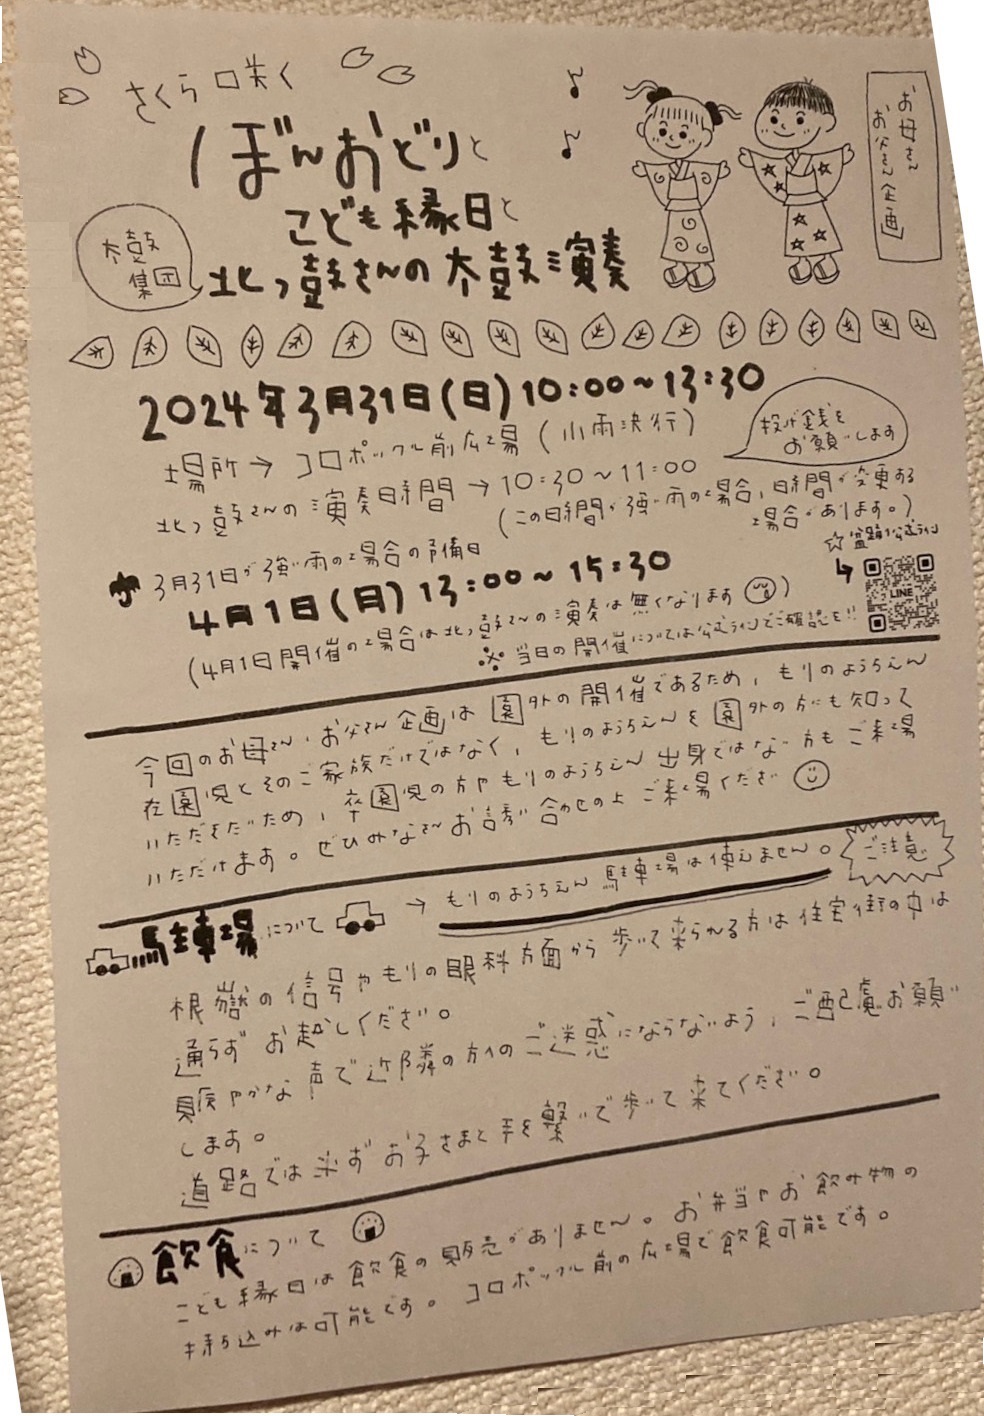 さくら咲く
ぼんおどりと
こども縁日と
太鼓
集団
北っ鼓さんの太鼓演奏
お母さん
お父さん企画
2024年3月31日(日)10:00~13:30
場所→コロポックル前広場(小雨決行)
投げ銭を
お願いします
北っ鼓さんの演奏時間→10:30~11:00
(この時間が強い雨の場合、時間が変更する
場合があります。)
3月31日が強い雨の場合の予備日
4月1日(月)13:00~15:30
☆盆踊り公式ライン
LINE
(4月1日開催の場合は北っ鼓さんの演奏は無くなります)
※当日の開催については公式ラインでご確認を!!
今回のお母さん・お父さん企画は園外の開催であるため、もりのようちえん
在園児とそのご家族だけではなく、もりのようちえんを園外の方にも知って
いただきたいため、卒園児の方やもりのようちえん出身ではない方もご来場
いただけます。ぜひみなさんお誘い合わせの上ご来場ください
駐車場について→もりのようちえん駐車場は使えません。
ご注意
根嶽の信号やもりの眼科方面から歩いて来られる方は住宅街の中は
通らずお越しください。
賑やかな声で近隣の方へのご迷惑にならないよう、ご配慮お願い
します。
道路では必ずお子さまと手を繋いで歩いて来てください。
飲食について
こども縁日は飲食の販売がありません。お弁当やお飲み物の
持ち込みは可能です。コロポックル前の広場で飲食可能です。